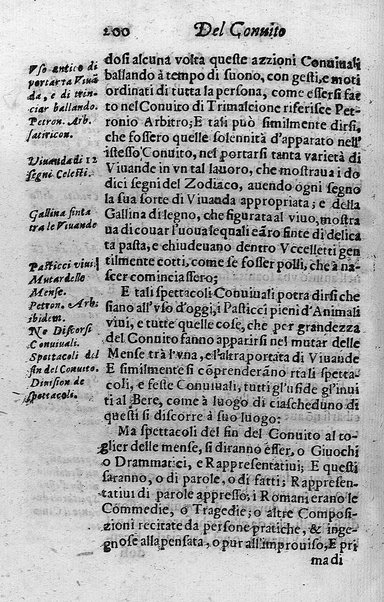 200
Del Conuito
Vso antico di
portarta Viuã
da, e di trin-
ciar ballando.
Petron. Arb.
satiricon.
Viuanda di 12
segni Celesti.
Gallina finta
tra le Viuande
Pasticci viui.
Mutar delle
Mense.
Petron. Arb.
ibidem.
No Discorsi
Conuiuali.
Spettacoli del
fin del Conuito.
Diuision de
spettacoli.
dosi alcuna volta queste azzioni Conuiuali
ballando à tempo di suono, con gesti, e moti
ordinati di tutta la persona, come essersi fat
to nel Conuito di Trimalcione riferisce Pet-
ronio Arbitro; E tali può similmente dirsi,
che fossero quelle solennità d'apparato nell'
istesso Conuito, nel portarsi tanta varietà di
Viuande in vn tal lauoro, che mostraua i do
dici segni del Zodiaco, auendo ogni segno
la sua sorte di Viuanda appropriata; e della
Gallina di legno, che figurata al viuo, mostra
ua di couar l'uoua le quali erãro finte di delica
ta pasta, e chiudeuano dentro Vccelletti gen
tilmente cotti, come se fosser polli, che à na-
scer cominciassero;
E tali spettacoli Conuiuali potra dirsi che
siano all'vso d'oggi, i Pasticci pieni d'Animali
viui, e tutte quelle cose, che per grandezza
del Conuito fanno apparirsi nel mutar delle
Mense trà l'vna, e l'altra portata di Viuande
E similmente si cõprenderãno rtali spetta-
coli, e feste Conuiuali, tutti gl'usi de gl'inui
ti al Bere, come à luogo di ciascheduno di
questi si discorre à suo luogo:
Ma spettacoli del fin del Conuito al to-
glier delle mense, si diranno esser, o Giuochi
o Drammatici, e Rappresentatiui; E questi
saranno, o di parole, o di fatti; Rappresen-
tatiui di parole appresso, i Romani erano le
Commedie, o Tragedie; o altre Composi-
zioni recitate da persone pratiche, & inge-
gnose alla pensata, o pur all'improuiso, E pri
ma di